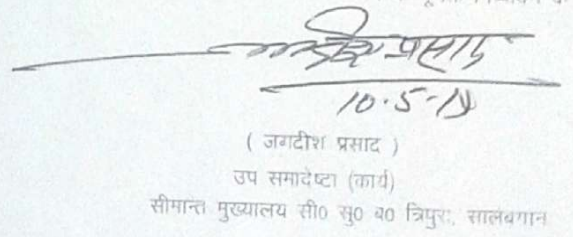 जगदीश प्रसाद
10.5.19
( जगदीश प्रसाद )
उप समादेष्टा (कार्य)
सीमान्त मुख्यालय सी0 सु0 ब0 त्रिपुरा, सालबगान